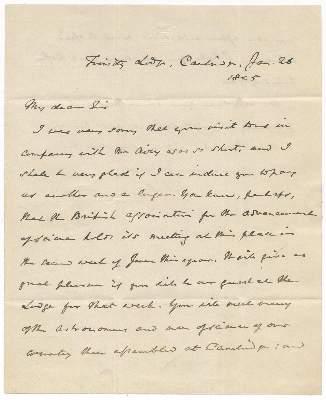 Trinity Lodge, Cambridge, Jan. 28
1845
My dear Sir
I was very sorry that your visit to us in
company with Mr Airy was so short, and I
shall be very glad if I can induce you to pay
us another and a longer. You know, perhaps,
that the British Association for the Advancement
of Science holds its meeting at this place in
the third week of June this year. It will give us
great pleasure if you will be our guest at the
Lodge for that week. You will meet many
of the Astronomers and men of science of our
country then assembled at Cambridge; and